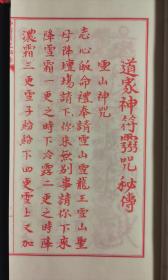 道家神符靈咒秘傳
雪山神咒
志心敬命禮奉請雪山雪龍王雪山聖
母降壇塲請下你來無别事請你下來
降雪霜一更之時下冷露二更之時降
濃霜三更雪子紛紛下四更雪上又加